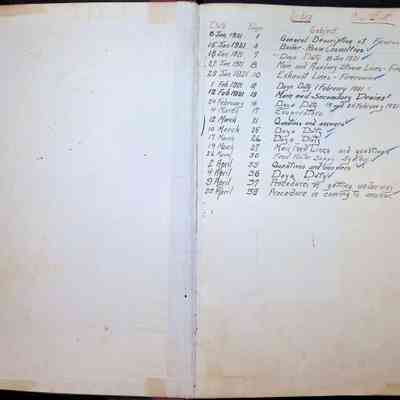 Index
Date Page Subject
8 Jan 1921 1 General Description of
15 Jan 1921 4 Boiler Room Committee
18 Jan 1921 7 Days Duty 18 Jan 1921
21 Jan 1921 8 Main and Auxiliary Steam Lines -
25 Jan 1921 10 Exhaust Lines - Fireroom
1 Feb 1921 12 Days Duty 1 February 1921
12 Feb 1921 13 Main and Secondary Drains
February Days Duty February 1921
4 March 17 Evaporators
12 March 21 Questions and answers
10 March 25 Days Duty
17 March 26 Days Duty
19 March 27 Main Feed Lines and questions
30 Feed Water
2 April 33 Questions and answers
4 April 36 Days Duty
9 April 37 Procedure of getting underway
25 April 38 Procedure in coming to anchor